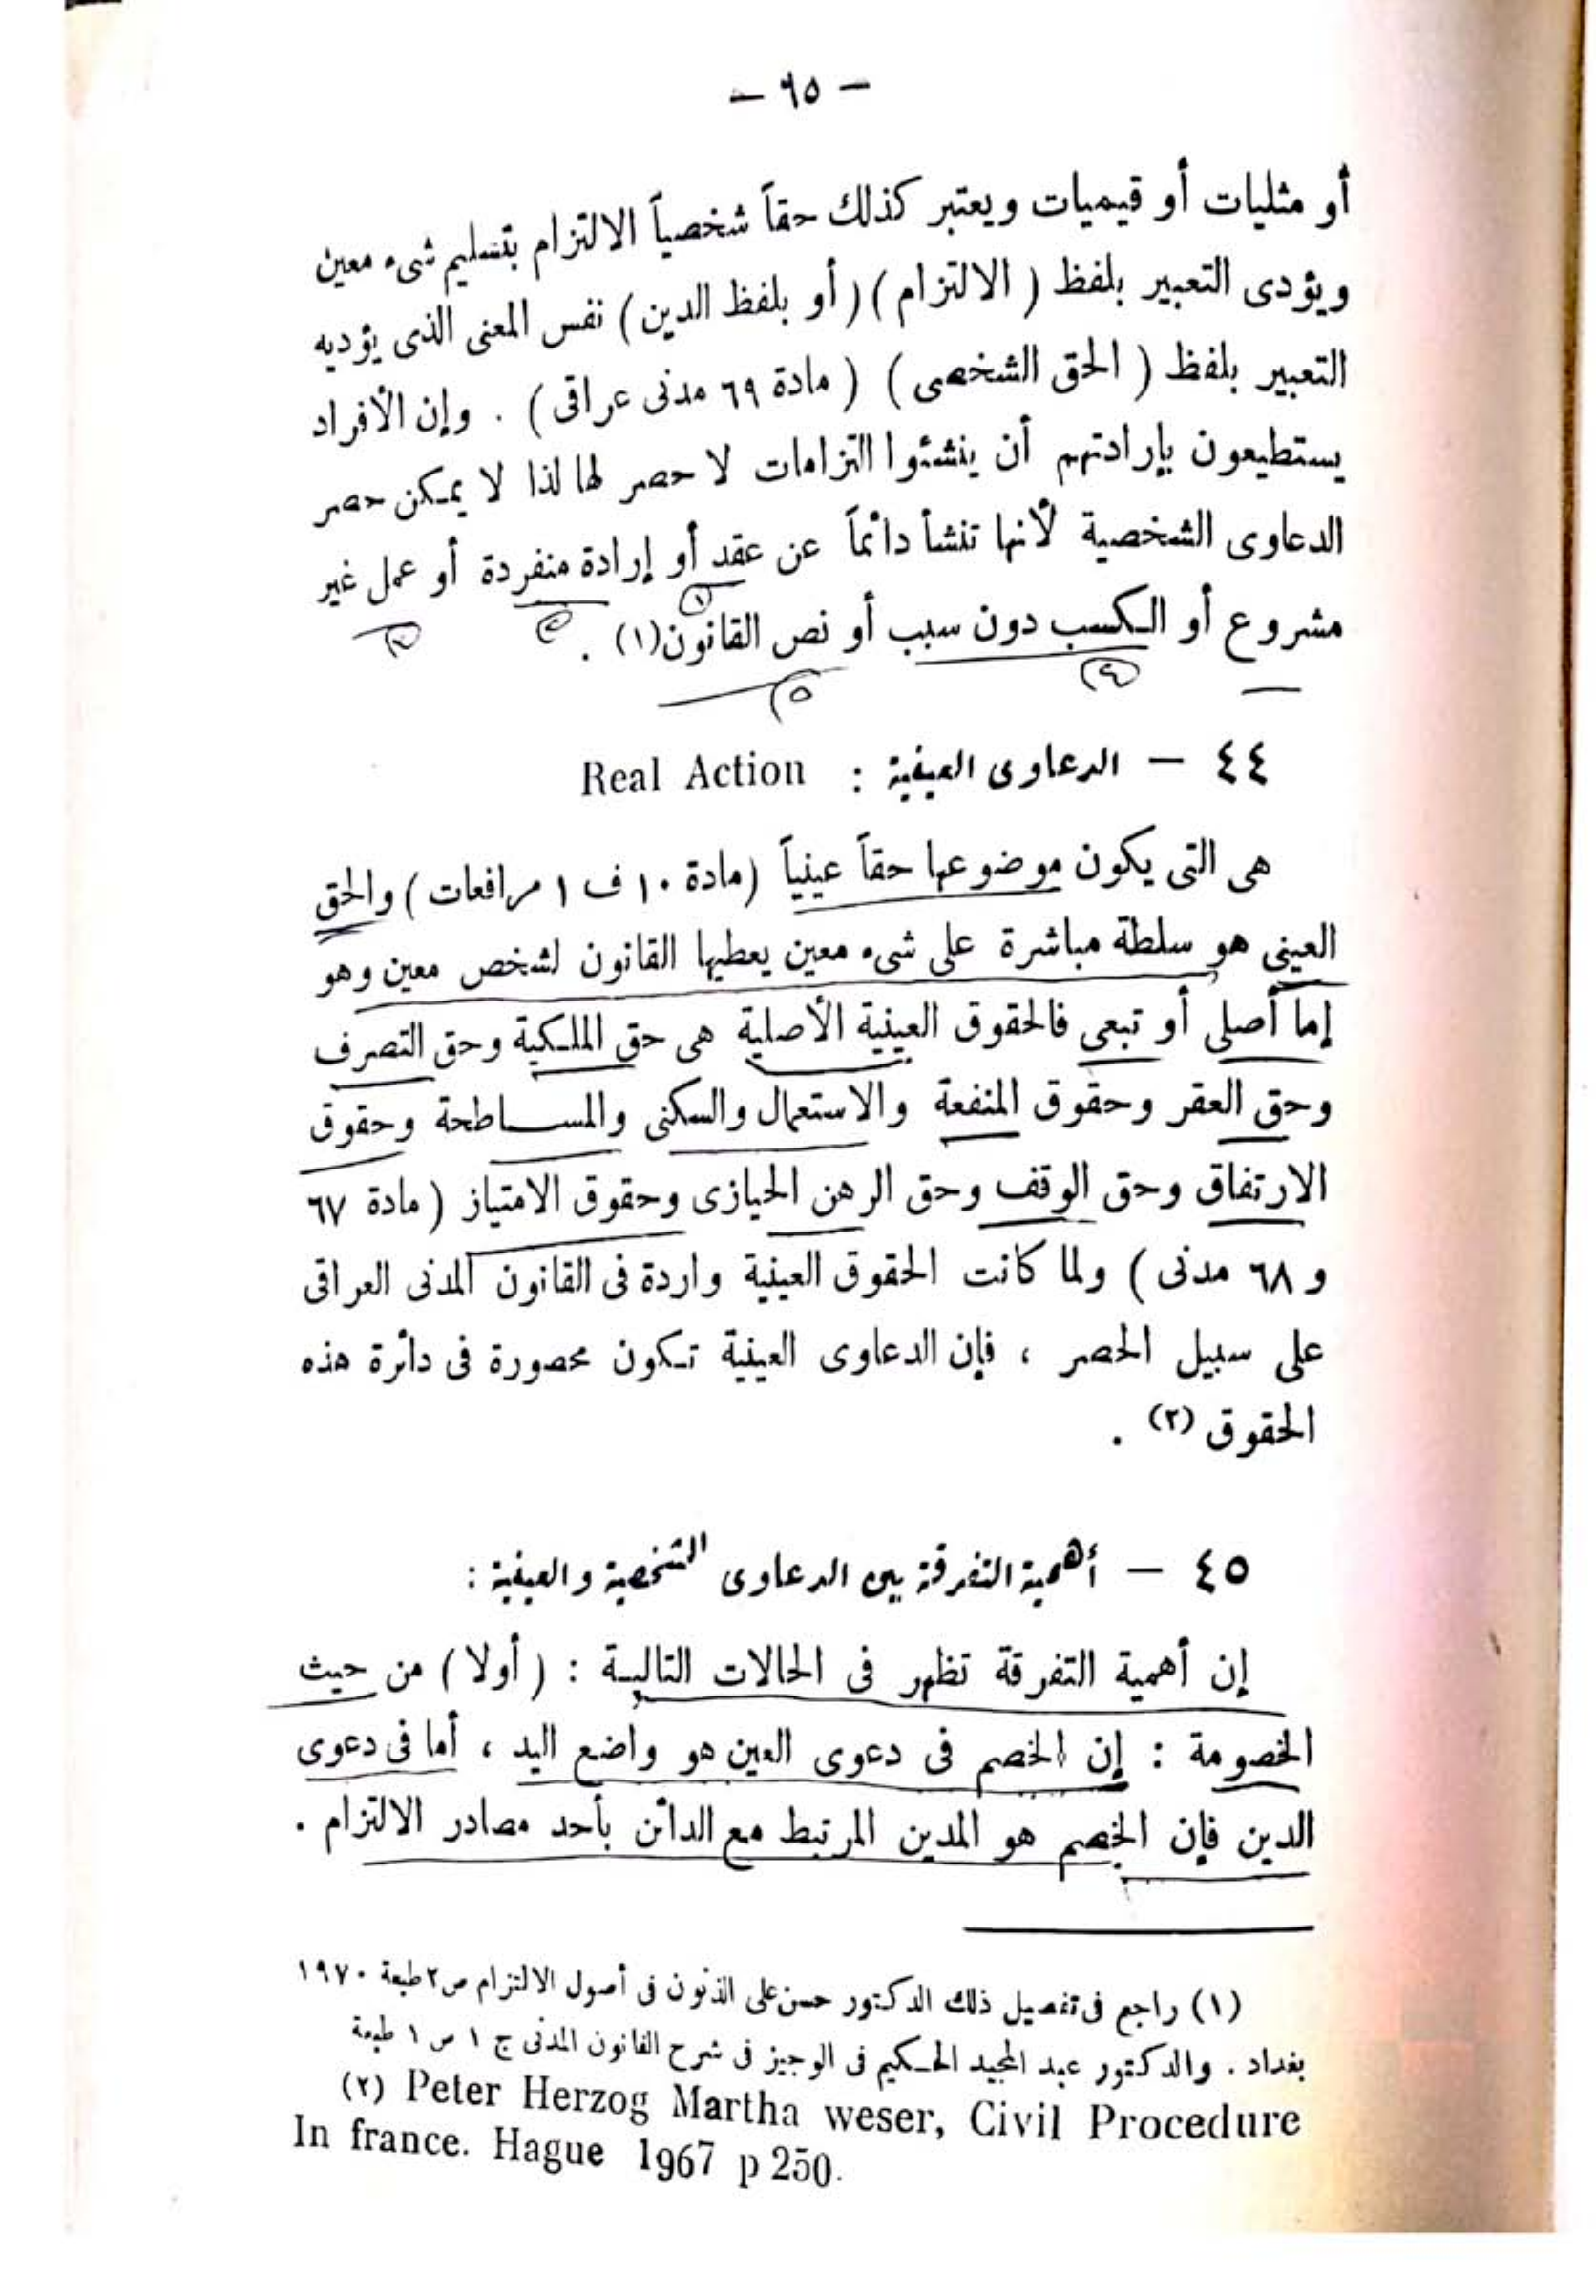 — ٦٥ —
أو مثليات أو قيميات ويعتبر كذلك حقاً شخصياً الالتزام بتسليم شىء معين
ويؤدى التعبير بلفظ ( الالتزام ) ( أو بلفظ الدين ) نفس المعنى الذى يؤديه
التعبير بلفظ ( الحق الشخصى ) ( مادة ٦٩ مدنى عراقى ) . وإن الأفراد
يستطيعون بإرادتهم أن ينشئوا التزامات لا حصر لها لذا لا يمكن حصر
الدعاوى الشخصية لأنها تنشأ دائماً عن عقد أو إرادة منفردة أو عمل غير
مشروع أو الكسب دون سبب أو نص القانون(١) .
١ ٢ ٣
٤ ٥
٤٤ — الدعاوى العينية : Real Action
هى التى يكون موضوعها حقاً عينياً (مادة ١٠ ف ١ مرافعات ) والحق
العينى هو سلطة مباشرة على شىء معين يعطيها القانون لشخص معين وهو
إما أصلى أو تبعى فالحقوق العينية الأصلية هى حق الملكية وحق التصرف
وحق العقر وحقوق المنفعة والاستعمال والسكنى والمساطحة وحقوق
الارتفاق وحق الوقف وحق الرهن الحيازى وحقوق الامتياز ( مادة ٦٧
و ٦٨ مدنى ) ولما كانت الحقوق العينية واردة فى القانون المدنى العراقى
على سبيل الحصر ، فإن الدعاوى العينية تكون محصورة فى دائرة هذه
الحقوق (٢) .
٤٥ — أهمية التفرقة بين الدعاوى الشخصية والعينية :
إن أهمية التفرقة تظهر فى الحالات التالية : ( أولا ) من حيث
الخصومة : إن الخصم فى دعوى العين هو واضع اليد ، أما فى دعوى
الدين فإن الخصم هو المدين المرتبط مع الدائن بأحد مصادر الالتزام .
(١) راجع فى تفصيل ذلك الدكتور حسن على الذنون فى أصول الالتزام ص٢ طبعة ١٩٧٠
بغداد . والدكتور عبد المجيد الحكيم فى الوجيز فى شرح القانون المدنى ج ١ ص ١ طبعة
(٢) Peter Herzog Martha weser, Civil Procedure
In france. Hague 1967 p 250.